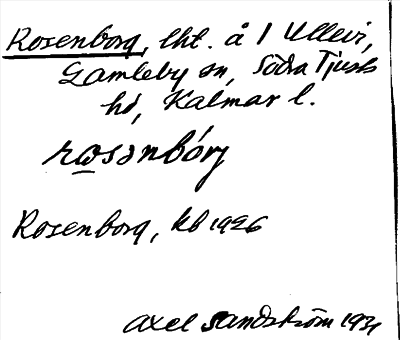 Rosenborg, lht. å 1 Ullevi,
Gamleby sn, Södra Tjusts
hd, Kalmar l.
rosənbórj
Rosenborg, kb 1926
Axel Sandström 1931